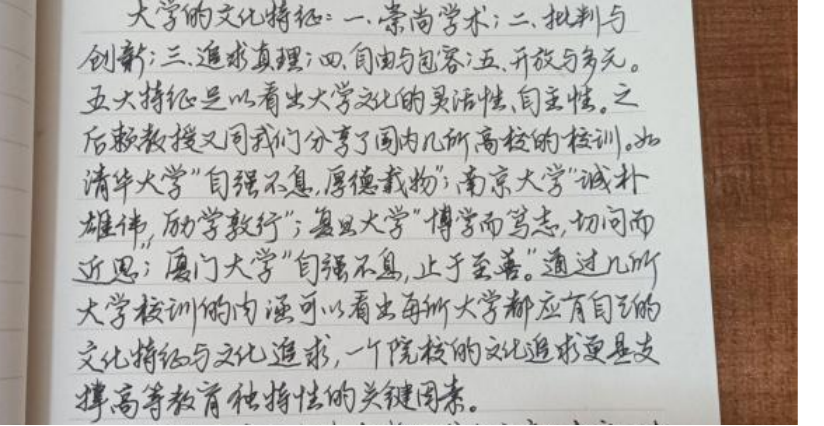 大学的文化特征：一、崇尚学术；二、批判与
创新；三、追求真理；四、自由与包容；五、开放与多元。
五大特征足以看出大学文化的灵活性、自主性。之
后赖教授又同我们分享了国内几所高校的校训。如
清华大学“自强不息，厚德载物”；南京大学“诚朴
雄伟，励学敦行”；复旦大学“博学而笃志，切问而
近思；厦门大学“自强不息，止于至善。”通过几所
大学校训的内涵可以看出每所大学都应有自己的
文化特征与文化追求，一个院校的文化追求更是支
撑高等教育独特性的关键因素。